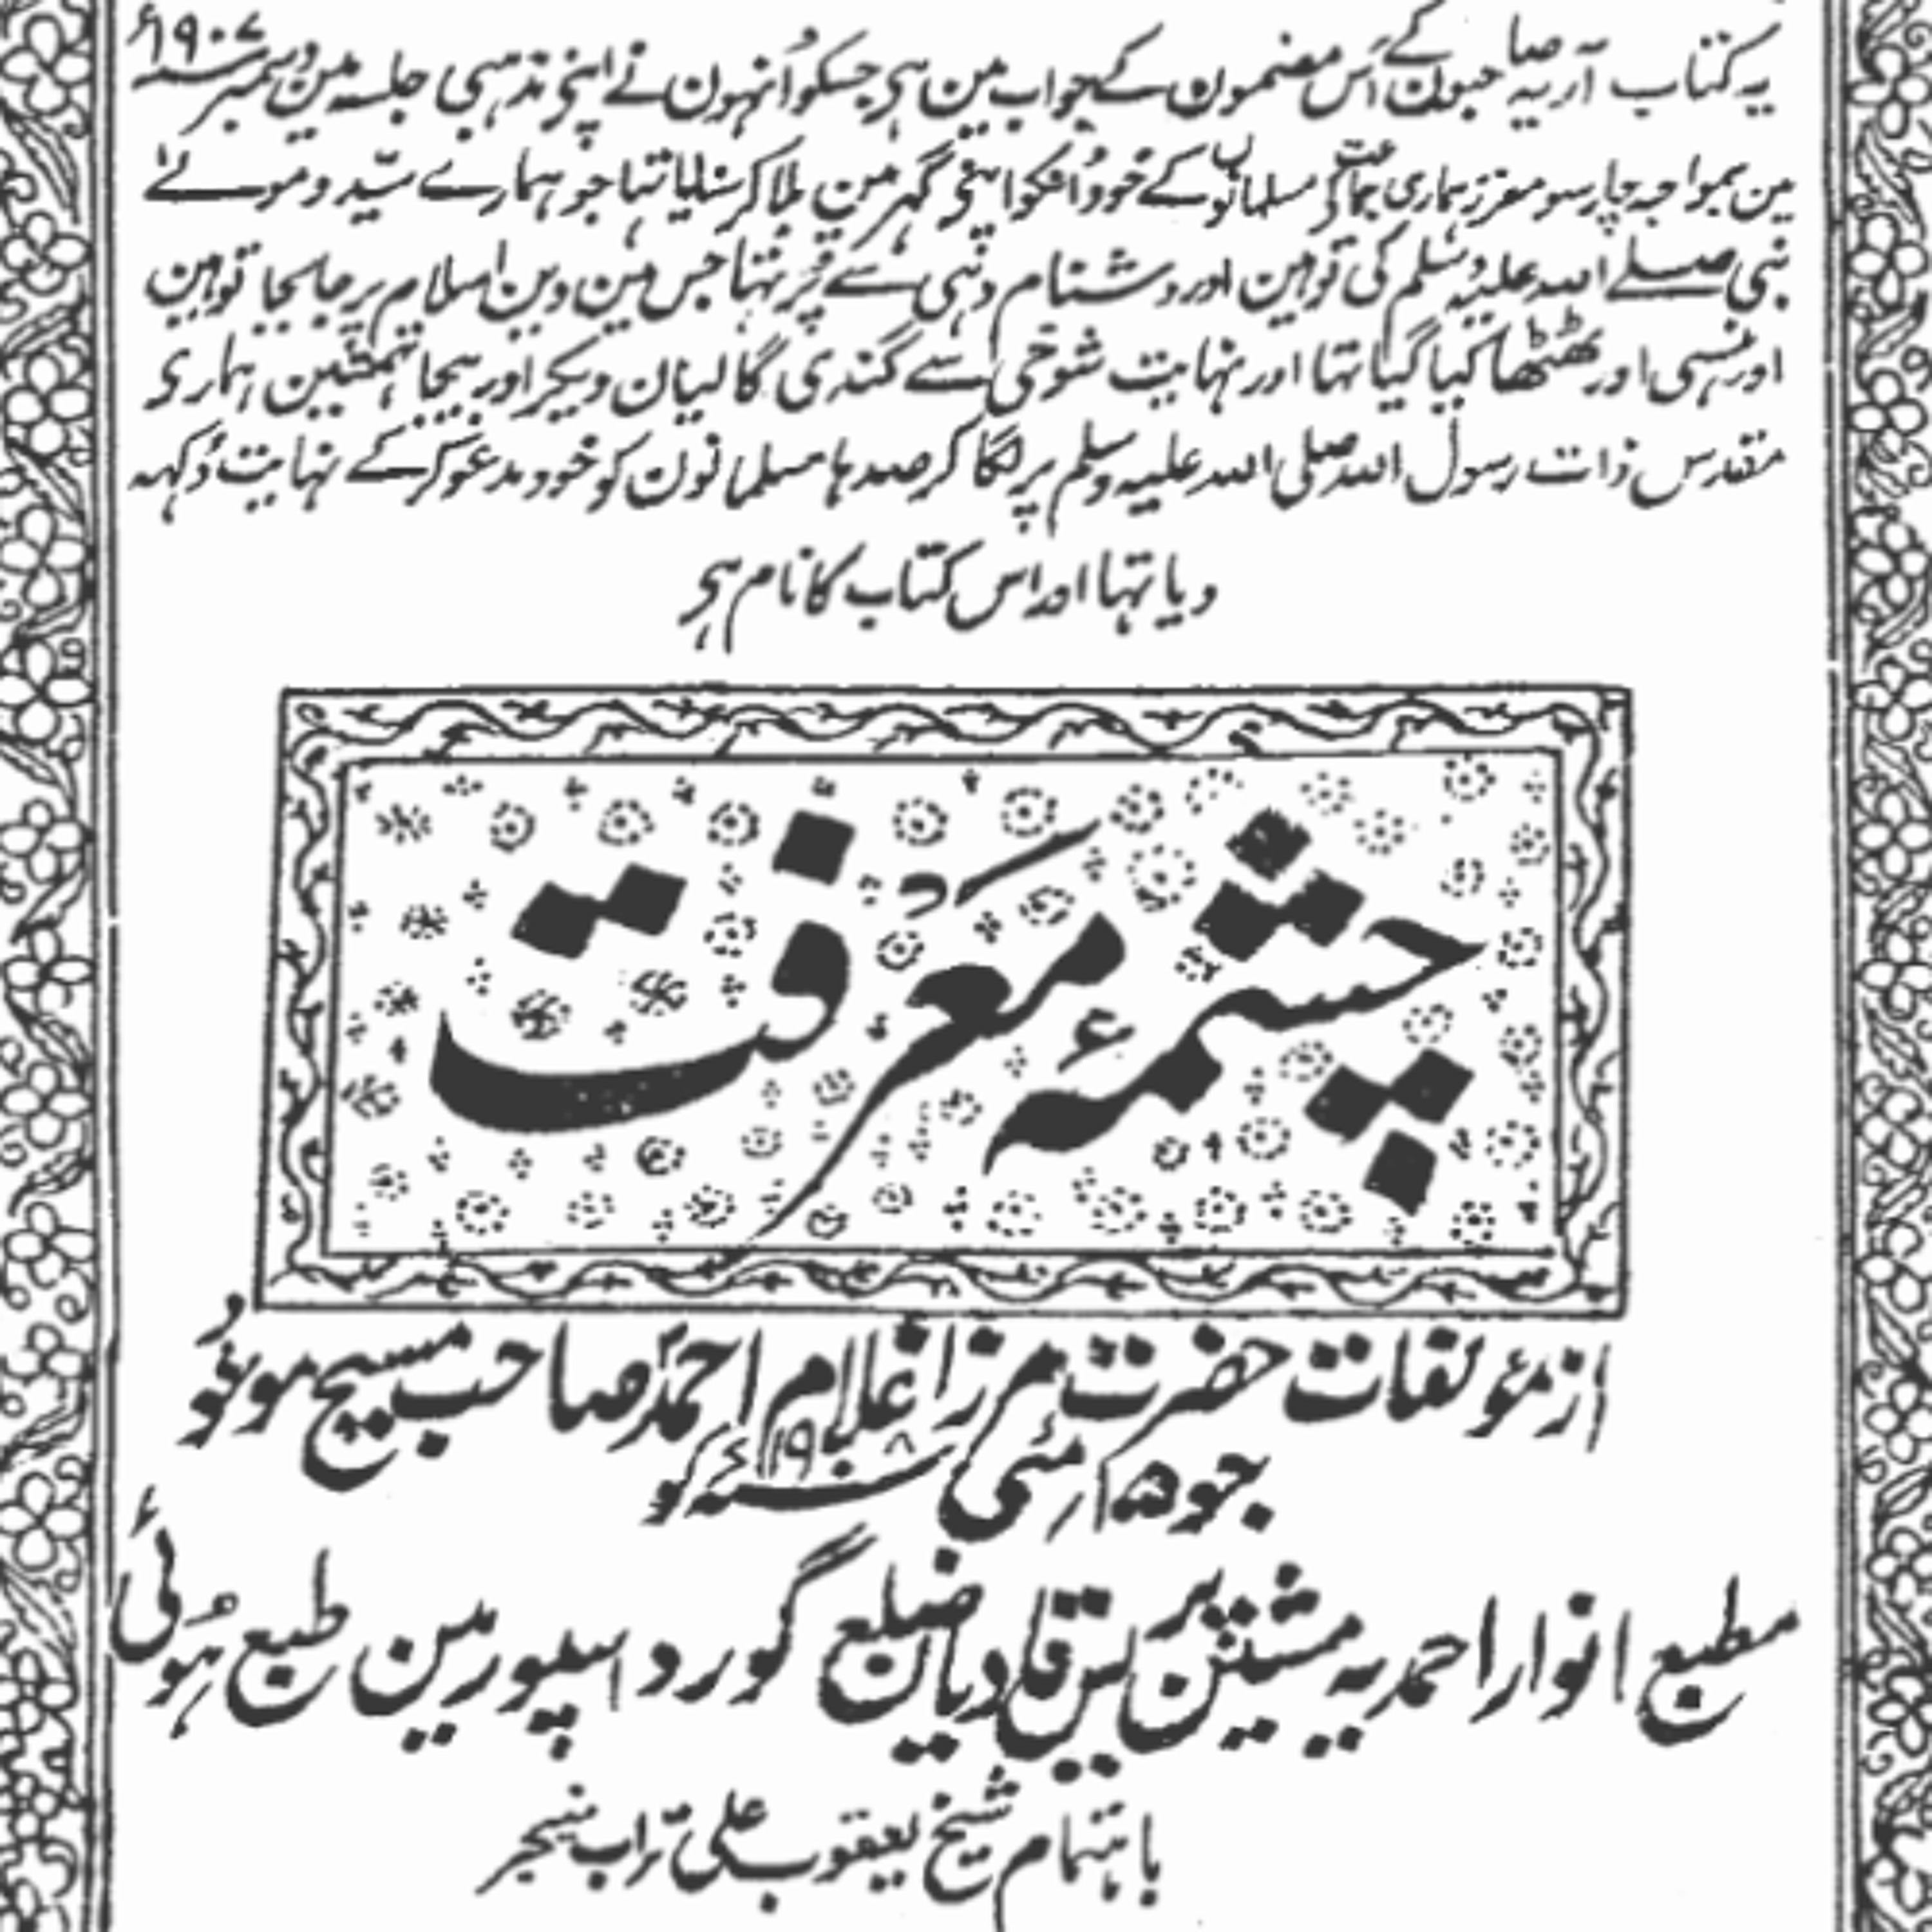 یہ کتاب آریہ صاحبون کے اُس مضمون کے جواب مین ہی جسکو اُنہون نے اپنی مذہبی جلسہ مین دسمبر ۱۹۰۷ء
مین بمواجہ چار سو معزز ہماری جماعت کی مسلمانون کے خود اُنکو اپنی گہر مین بُلا کر سنایا تہا جو ہمارے سیّد و مولے
نبی صلے اللہ علیہ وسلم کی توہین اور دشنام دہی سے پُر تہا جس مین دین اسلام پر جا بجا توہین
اور ہنسی اور ٹھٹھا کیا گیا تہا اور نہایت شوخی سے گندی گالیان دیکر اور بیجا تہمتین ہماری
مقدس ذات رسول اللہ صلی اللہ علیہ وسلم پر لگا کر صدہا مسلمانون کو خود مدعو کر کے نہایت دُکہہ
دیا تہا اور اس کتاب کا نام ہی
چشمۂ معرفت
از مؤلفات حضرت مرزا غلام احمدؑ صاحب مسیح موعُود
جو ۱۵ مئی ۱۹۰۸ء کو
مطبع انوار احمدیہ مشین پریس قادیان ضلع گورداسپور مین طبع ہُوئی
باہتمام شیخ یعقوب علی تراب منیجر